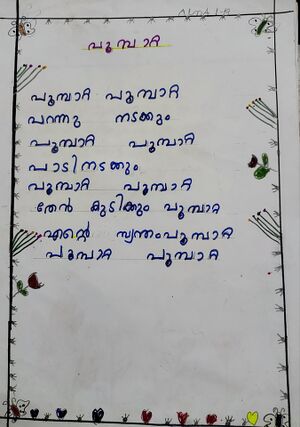 പൂമ്പാറ്റ
പൂമ്പാറ്റ പൂമ്പാറ്റ
പറന്നു നടക്കും
പൂമ്പാറ്റ പൂമ്പാറ്റ
പാടിനടക്കും
പൂമ്പാറ്റ പൂമ്പാറ്റ
തേൻ കുടിക്കും പൂമ്പാറ്റ
എന്റെ സ്വന്തം പൂമ്പാറ്റ
പൂമ്പാറ്റ പൂമ്പാറ്റ